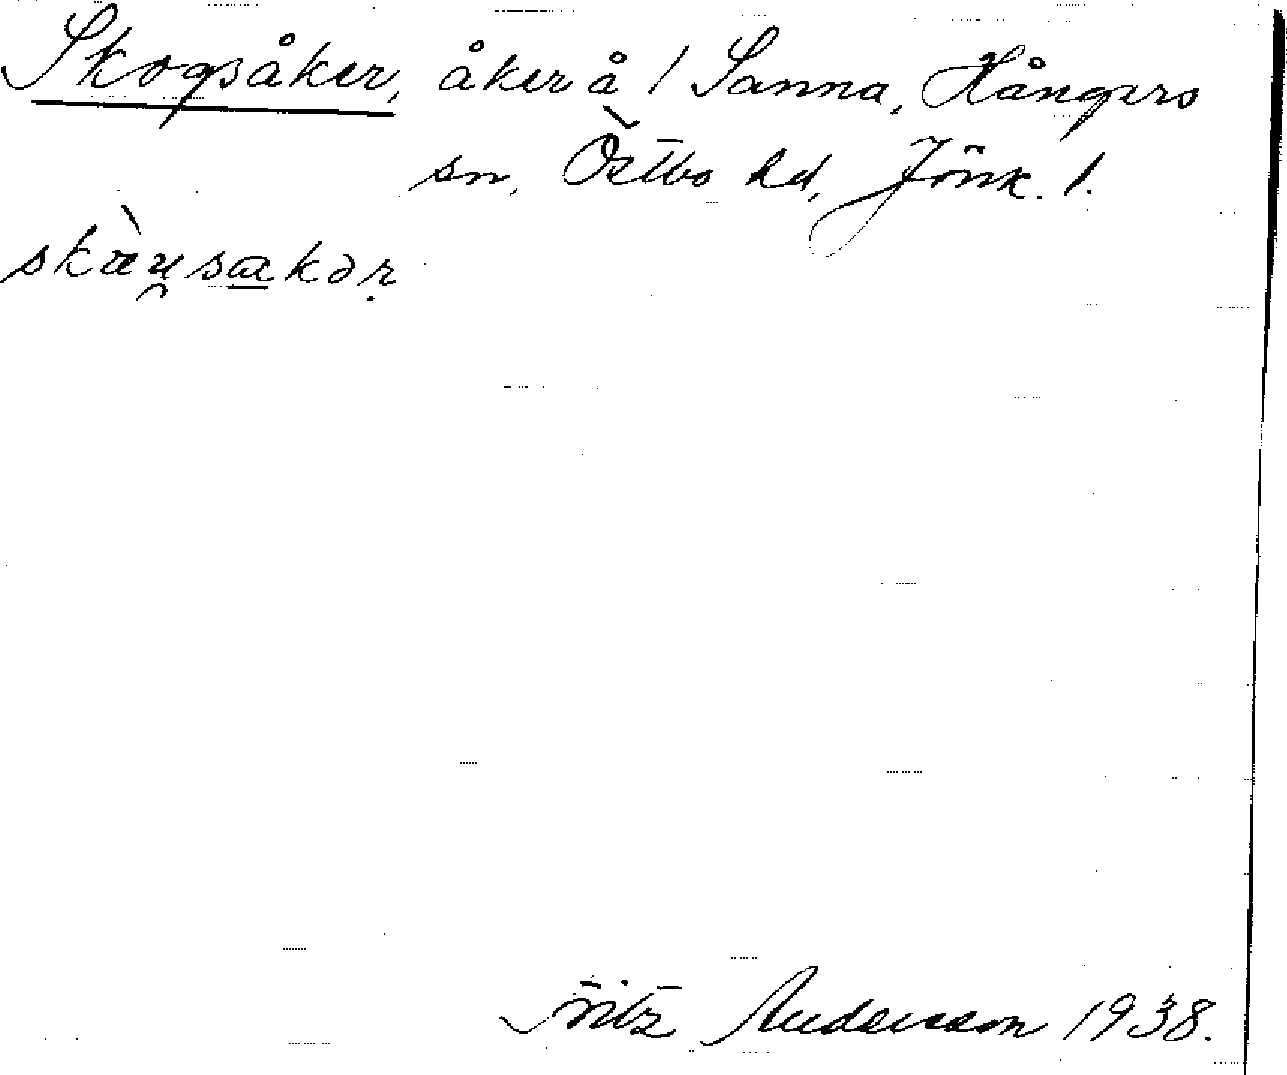 Skogsåker, åker å / Sanna, Hångers
sn, Östbo hd, Jönk. l.
Fritz Andersson 1938.